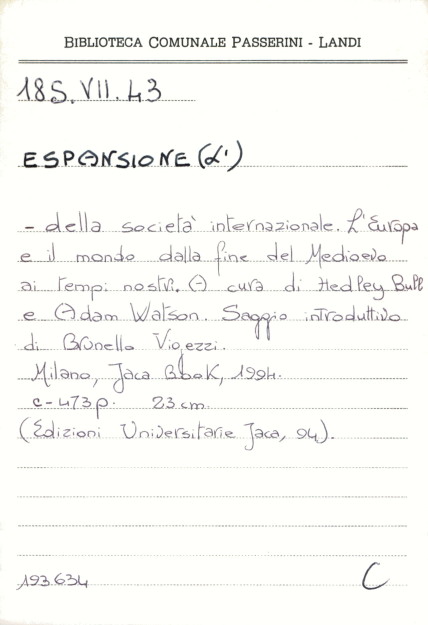 BIBLIOTECA COMUNALE PASSERINI - LANDI
18S.VII.43
ESPANSIONE (L')
- della società internazionale. L'Europa
e il mondo dalla fine del Medioevo
ai tempi nostri. A cura di Hedley Bull
e Adam Watson. Saggio introduttivo
di Brunello Vigezzi.
Milano, Jaca Book, 1994.
c-473p. 23 cm.
(Edizioni Universitarie Jaca, 94).
193.634 C